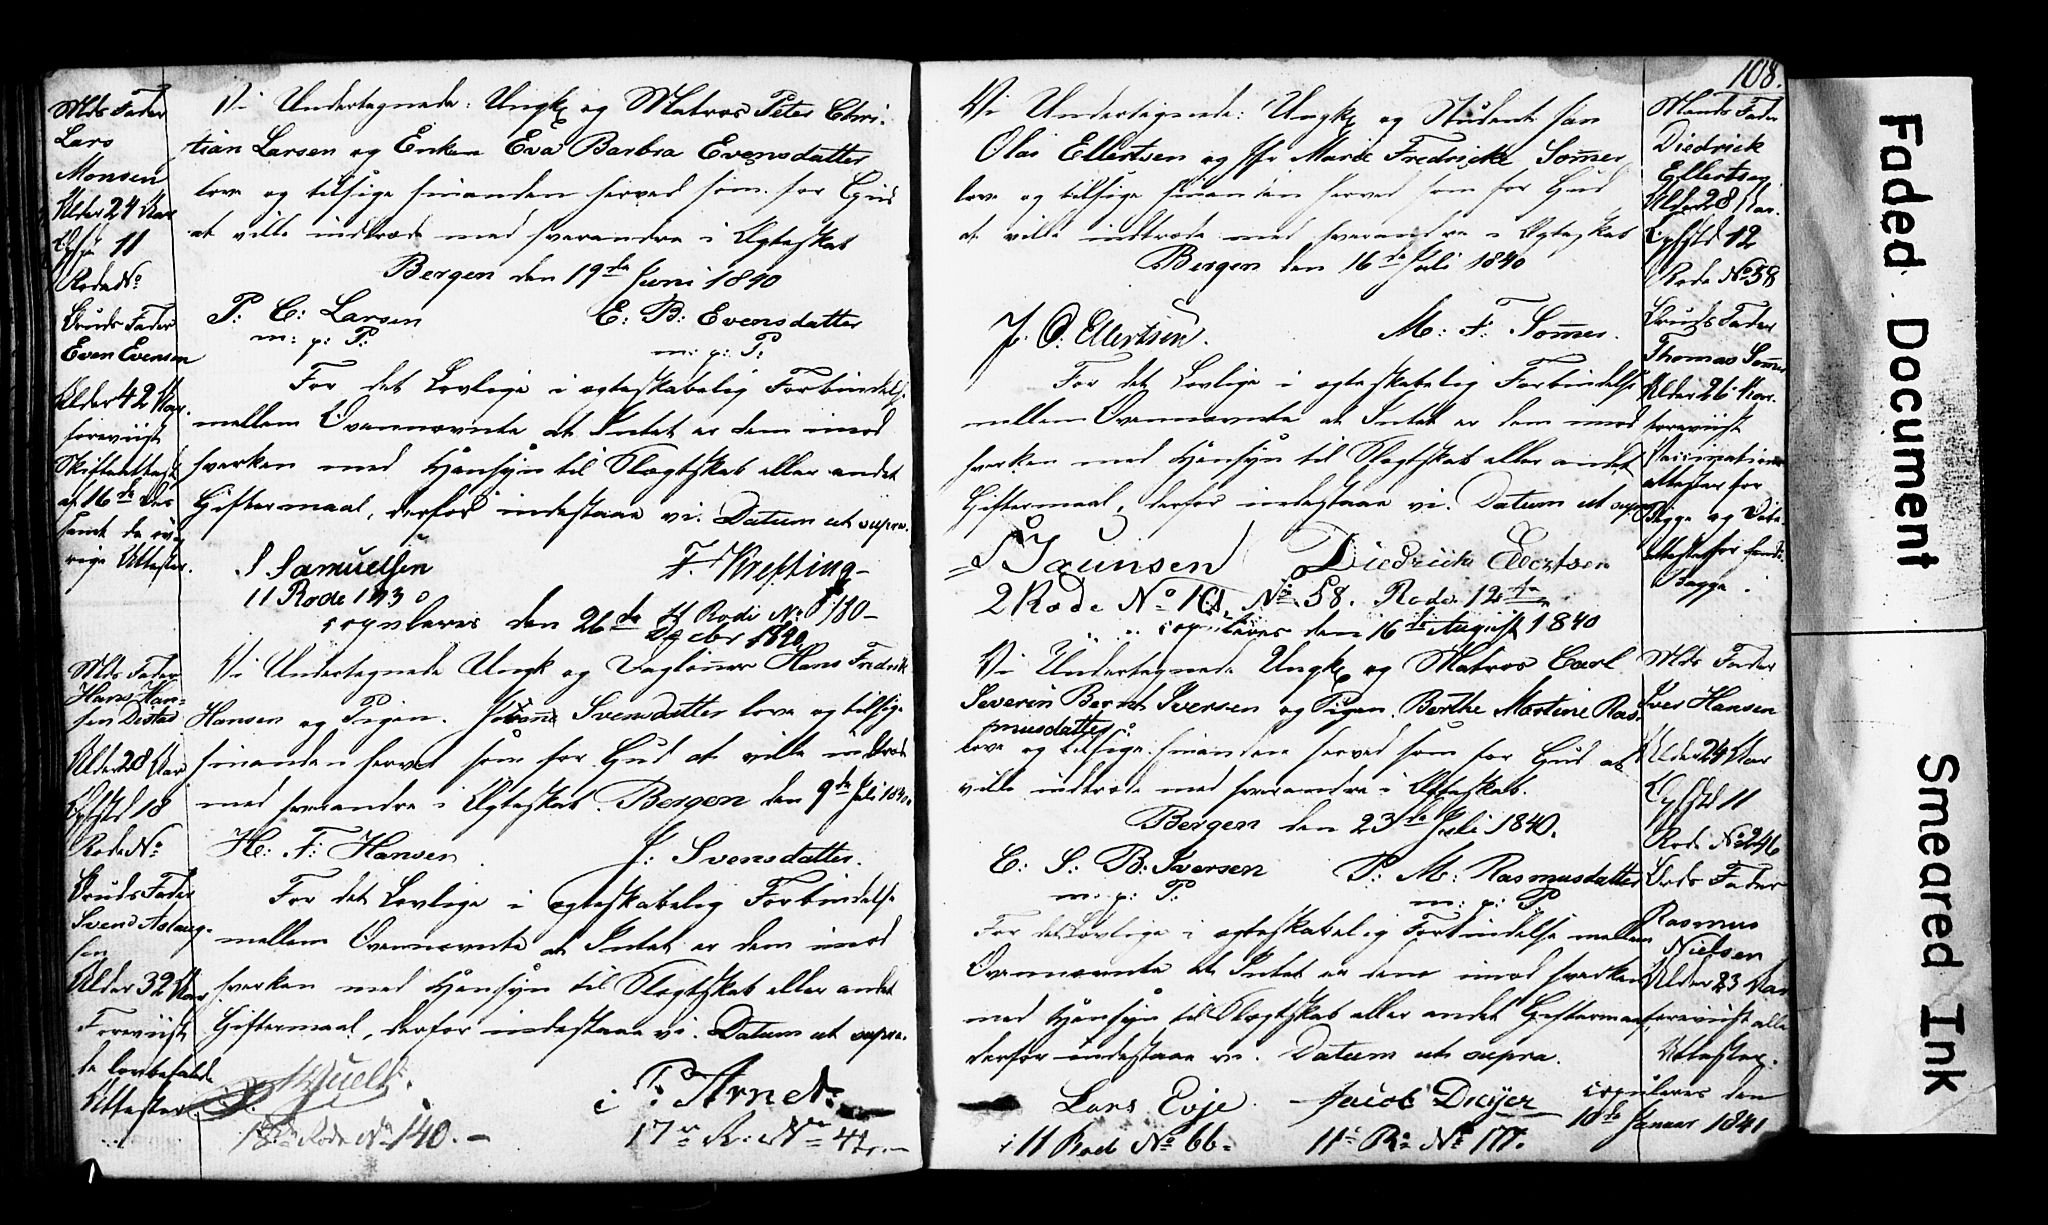 Mds Fader
Lars
Monsen
Alder 24 Aar
11
Rode No
Bruds Fader
Even Evensen
Alder 42 Aar.
foreviist
Skifteattest
af 16de
samt de øv
rige Attester.
Vi Undertegnede: Ungk og Matros Peter Chri-
tian Larsen og Enken Eva Barbra Evensdatter
love og tilsige hinanden herved som for Gud
at ville indtræde med hverandre i Ægteskab
Bergen den 19de Juni 1840
P: C: Larsen E: B: Evensdatter
m: p: P: m: p: P:
For det Lovlige i ægteskabelig Forbindelse
mellem Ovennævnte at Intet er dem imod
hverken med Hensyn til Slægtskab eller andet
Giftermaal, derfor indestaae vi. Datum ut supra.
S Samuelsen F. Krefting
11 Rode 173 Rode No 180
copuleres den 26de Dcbr 1840
Mds Fader
Hans Han-
sen
Alder 28 Aar
18
Rode No
Bruds Fader
Svend Aslaug-
sen
Alder 32 Aar
Foreviist
de lovbefalede
Attester.
Vi Undertegnede Ungk og Daglønner Hans Fredrik
Hansen og Pigen Johana Svensdatter love og tilsige
hinanden herved som for Gud at ville indtræde
med hverandre i Ægteskab. Bergen den 9de Juli 1840.
H: F: Hansen J: Svensdatter.
For det Lovlige i ægteskabelig Forbindelse
mellem Ovennævnte at Intet er dem imod
hverken med Hensyn til Slægtskab eller andet
Giftermaal, derfor indestaae vi. Datum ut supra.
P. Arnet
18de Rode No 140. 17 R: No
108.
Vi Undertegnede: Ungk og Student Jan
Olai Ellertsen og Jfr Marie Fredrikke Somer
love og tilsige hinanden herved som for Gud
at ville indtræde med hverandre i Ægteskab
Bergen den 16de Juli 1840
J. O. Ellertsen. M: F: Somer.
For det Lovlige i ægteskabelig Forbindelse
mellem Ovennævnte at Intet er dem imod
hverken med Hensyn til Slægtskab eller andet
Giftermaal, derfor indestaae vi. Datum ut supra
Diedrich Ellertsen
2 Rode No 101. No 58. Rode 12te
copuleres den 16de August 1840
Mands Fader
Diedrick
Ellertsen
Alder 28 Aar.
12
Rode No 58
Bruds Fader
Thomas Somer
Alder 26 Aar.
foreviist
Vaccinations
attester for
Begge og Døbe-
attester for
Begge.
Vi Undertegnede Ungk og Matros Carl
Severin Berent Iversen og Pigen Berthe Martine Ras-
musdatter
love og tilsige hinanden herved som for Gud at
ville indtræde med hverandre i Ægteskab.
Bergen den 23de Juli 1840.
C: S: B: Iversen B: M: Rasmusdatter
m: p: P: m: p: P:
For det Lovlige i ægteskabelig Forbindelse mellem
Ovennævnte at Intet er dem imod hverken
med Hensyn til Slægtskab eller andet Giftermaal
derfor indestaae vi. Datum ut supra.
Lars Evje Jacob Dreyer
i 11 Rode No 66. 11 R: No 177.
copuleres den
10de Januar 1841
Mds Fader
Iver Hansen
Alder 24 Aar
11
Rode No 246
Brds Fader
Rasmus
Nielsen
Alder 23 Aar
foreviist alle
Attester.
Faded Document
Smeared Ink